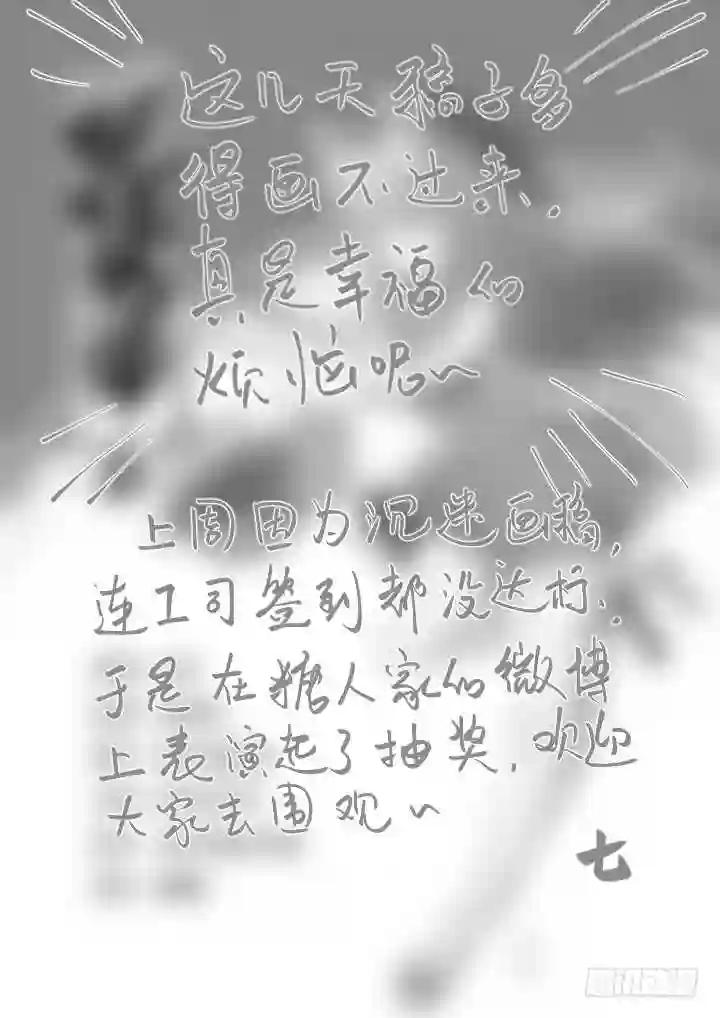 这几天稿子多
得画不过来，
真是幸福的
烦恼呢～
上周因为沉迷画稿，
连工司签到都没达标，
于是在糖人家的微博
上表演起了抽奖，欢迎
大家去围观～
七